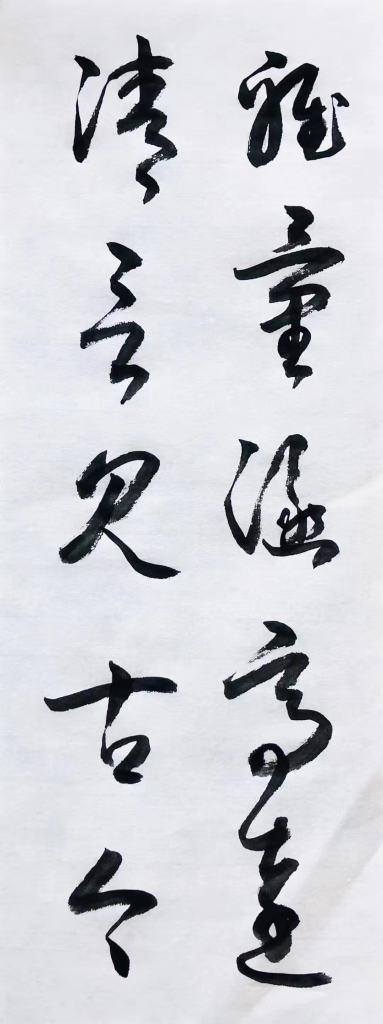 雅量涵高遠
清言見古今